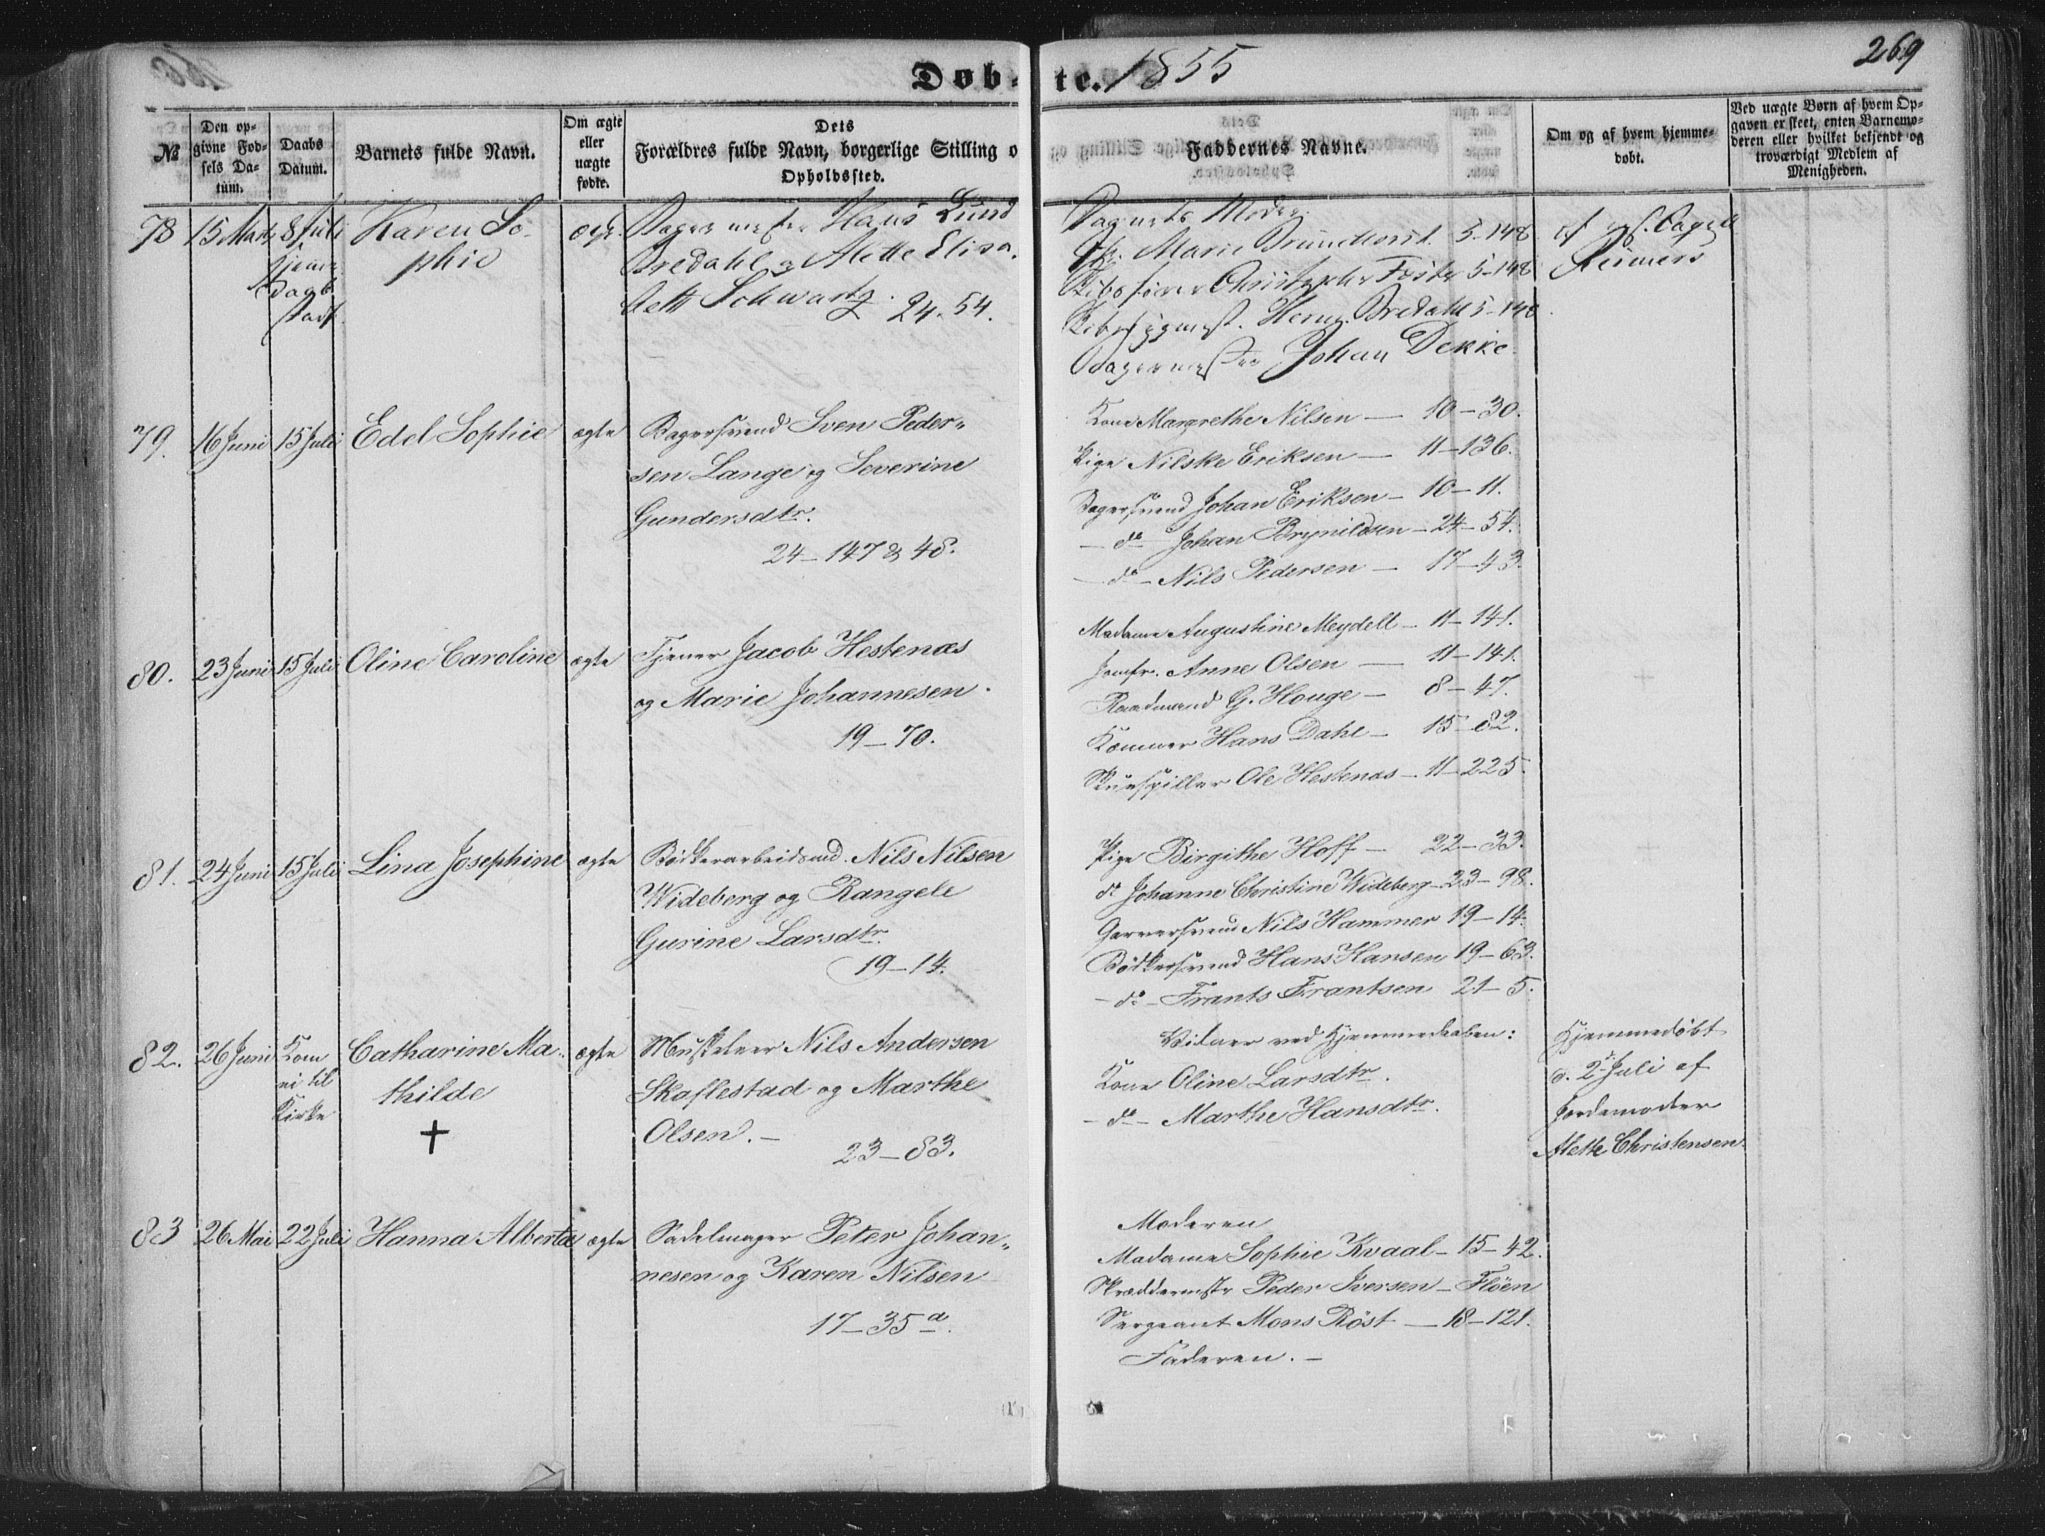 Døb-te. 1855
269
№
Den opgivne Fødsels Datum.
Daabs Datum.
Barnets fulde Navn.
Om ægte eller uægte fødte.
Dets Forældres fulde Navn, borgerlige Stilling o
Opholdssted.
Faddernes Navne.
Om og af hvem hjemmedøbt.
Ved uægte Børn af hvem Opgaven er skeet, enten Barnemoderen eller hvilket bekjendt og troværdigt Medlem af Menigheden.
78 15 Marts 8 Juli
Karen Sophie
Hans Lund
Bredahl og Alette Elisa-
beth Schwartz.
24-54.
Barnets Moder.
Marie Brunchorst 5-148
Christopher Faste 5-148
Herm. Bredahl 5-148
Bagermester Johan Dekke.
Reimers
79. 16 Juni 15 Juli Edel Sophie ægte
Bagersvend Sven Peder-
sen Lange og Severine
Gundersdtr.
24-147 & 48.
Kone Margrethe Nilsen - 10-30.
Pige Nilske Eriksen - 11-136.
Bagersvend Johan Eriksen - 10-11.
- do Johan Brynildsen - 24-54.
- do - Nils Pedersen - 17-43.
80. 23 Juni 15 Juli Oline Caroline ægte
Tjener Jacob Hestenæs
og Marie Johannesen.
19-70.
Madame Augustine Meydell - 11-141.
Jomfr. Anne Olsen - 11-141.
Raadmand G. Houge - 8-47.
Kæmner Hans Dahl - 15-82.
Skuespiller Ole Hestenæs - 11-225.
81. 24 Juni 15 Juli Lina Josephine ægte
Bødkerarbeidsmd. Nils Nilsen
Wideberg og Rangele
Gurine Larsdtr.
19-14.
Pige Birgithe Hoff - 22-33.
do Johanne Christine Wideberg - 23-98.
Garversvend Nils Hammer 19-14.
Bødkersvend Hans Hansen 19-63.
- do - Frants Frantsen 21-5.
82. 26 Juni Kom ei til Kirke
Catharine Ma-
thilde
†
ægte
Musketeer Nils Andersen
Skaflestad og Marthe
Olsen. -
23-83.
Vidner ved Hjemmedaaben:
Kone Oline Larsdtr.
- do - Marthe Hansdtr.
Hjemmedøbt
d. 2 Juli af
Jordemoder
Alette Christensen.
83 26 Mai 22 Juli Hanna Alberta ægte
Sadelmager Peter Johan-
nesen og Karen Nilsen
17-35 a.
Moderen
Madame Sophie Kvaal - 15-42.
Skræddermstr Peder Iversen - Fløen
Sergeant Mons Røst - 18-121.
Faderen. -